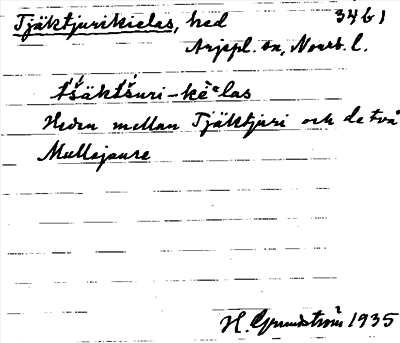 Tjäktjurikielas, hed 3461
Arjepl. sn, Norrb. l.
tšäktšuri-kēͤlas
Heden mellan Tjäktjuri och de två
Mullejaure
H. Grundström 1935